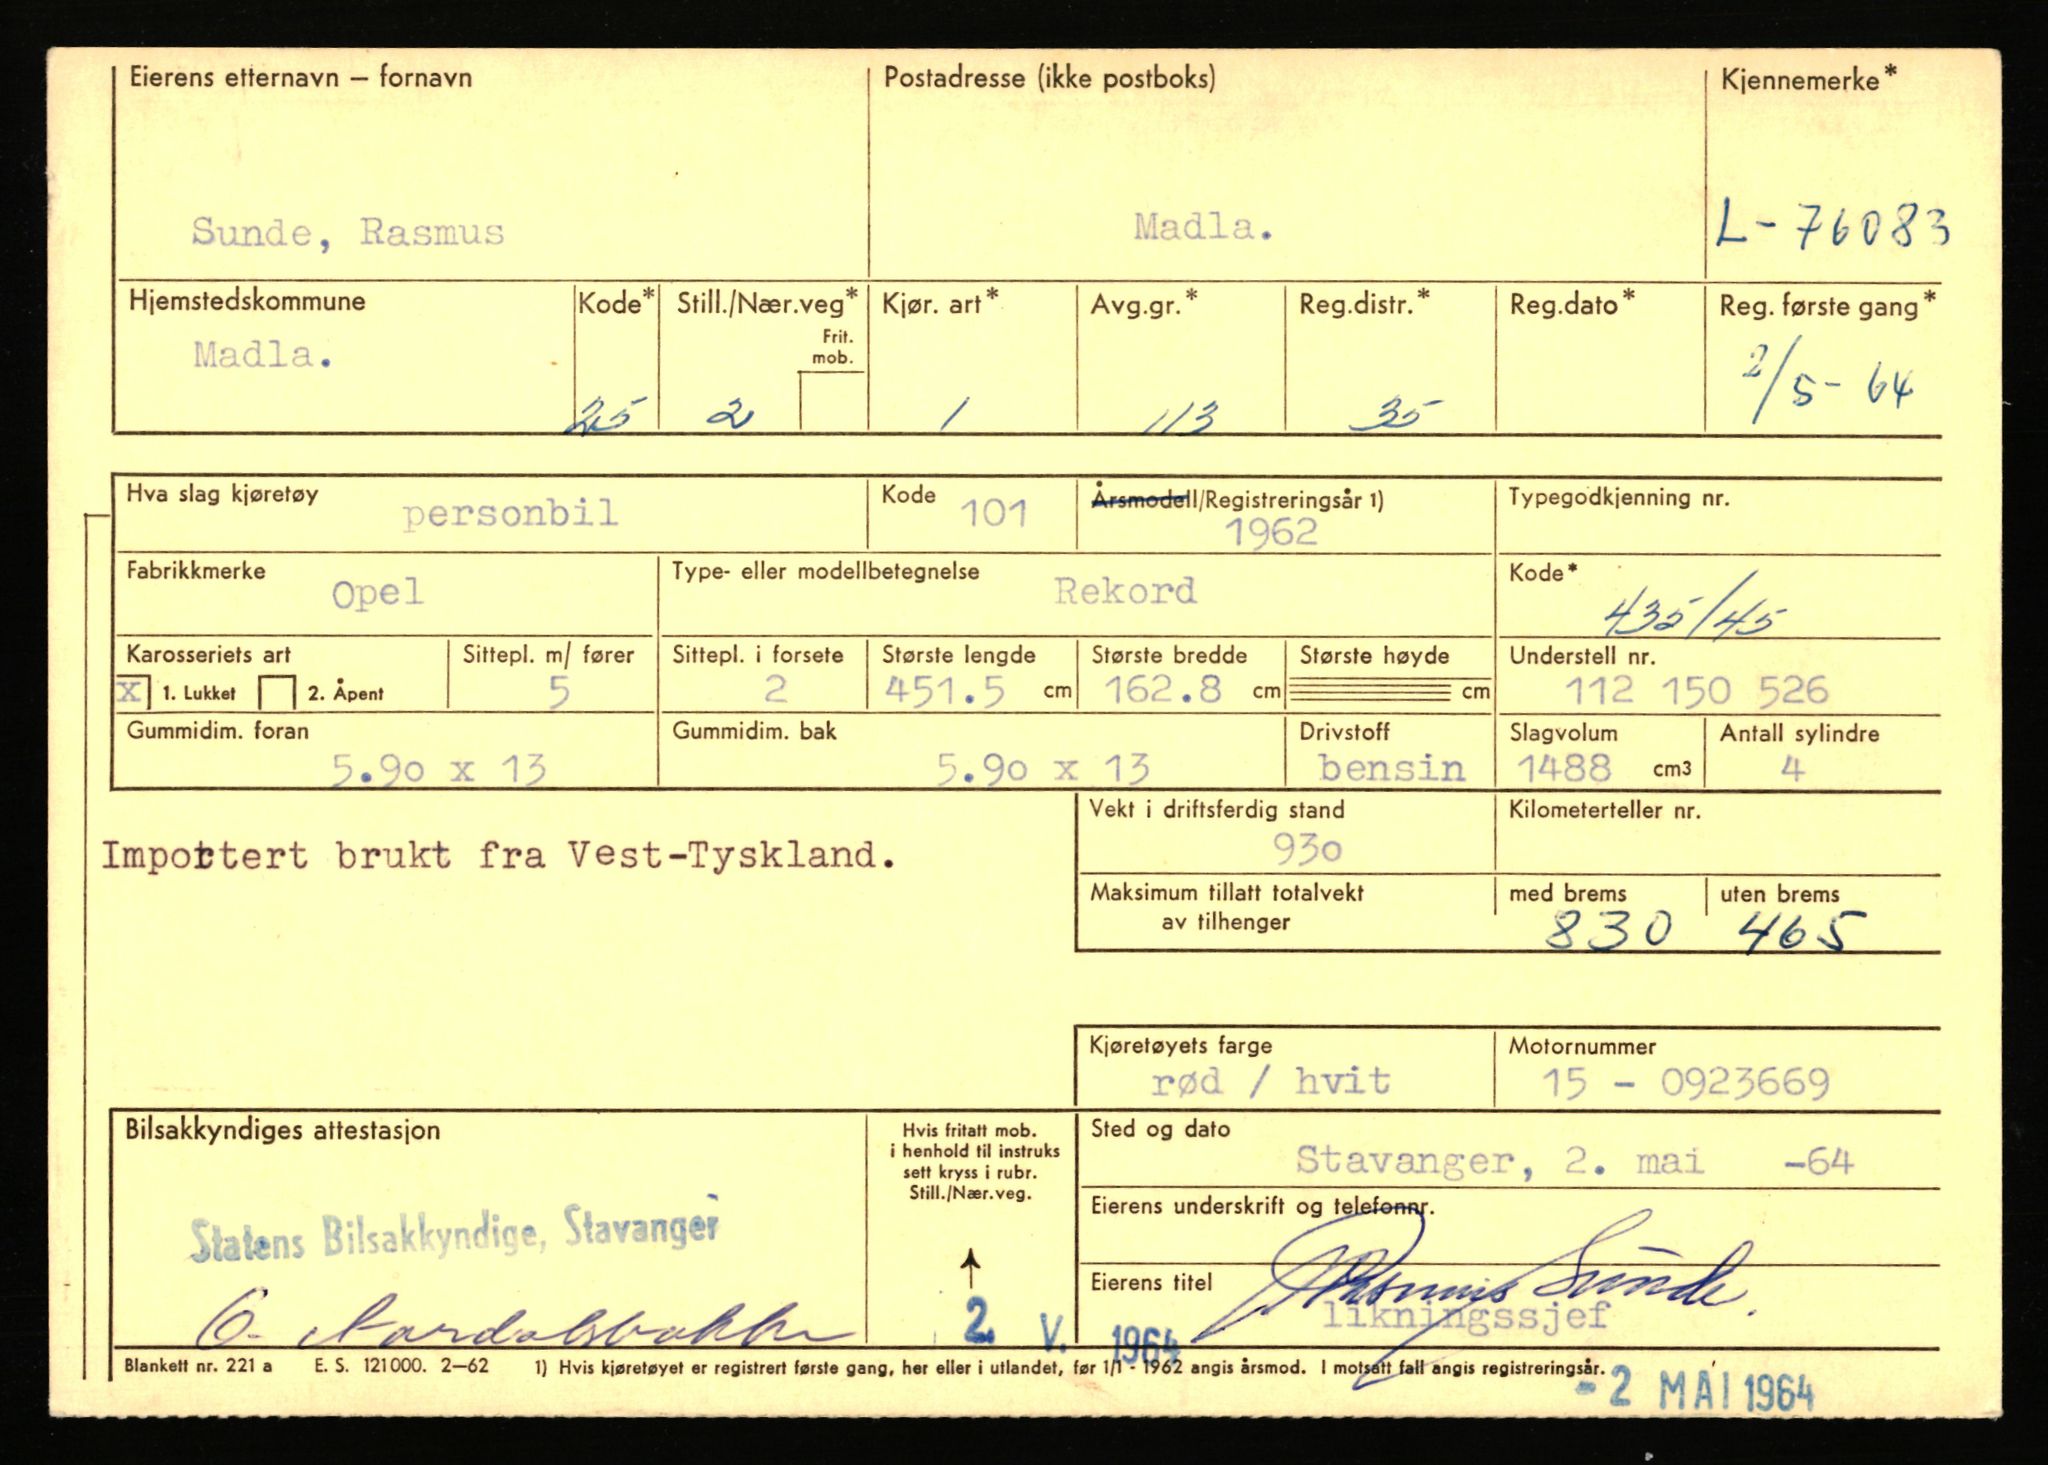 Eierens etternavn – fornavn
Postadresse (ikke postboks)
Kjennemerke*
Sunde, Rasmus
Madla.
L-76083
Hjemstedskommune
Kode*
Still./Nær.veg*
Frit. mob.
Kjør. art*
Avg.gr.*
Reg.distr.*
Reg.dato*
Reg. første gang*
Madla.
25
2
1
113
35
2/5-64
Hva slag kjøretøy
personbil
Kode
101
Årsmodell/Registreringsår 1)
1962
Typegodkjenning nr.
Fabrikkmerke
Opel
Type- eller modellbetegnelse
Rekord
Kode*
435/45
Karosseriets art
x 1. Lukket 2. Åpent
Sittepl. m/ fører
5
Sittepl. i forsete
2
Største lengde
451.5 cm
Største bredde
162.8 cm
Største høyde
cm
Understell nr.
112 150 526
Gummidim. foran
5.90 x 13
Gummidim. bak
5.90 x 13
Drivstoff
bensin
Slagvolum
1488 cm3
Antall sylindre
4
Vekt i driftsferdig stand
930
Kilometerteller nr.
Importert brukt fra Vest-Tyskland.
Maksimum tillatt totalvekt
av tilhenger
med brems
830
uten brems
465
Kjøretøyets farge
rød / hvit
Motornummer
15 - 0923669
Bilsakkyndiges attestasjon
Statens Bilsakkyndige, Stavanger
Hvis fritatt mob.
i henhold til instruks
sett kryss i rubr.
Still./Nær.veg.
2. V. 1964
Sted og dato
Stavanger, 2. mai -64
Eierens underskrift og telefonnr.
Rasmus Sunde.
Eierens titel
likningssjef
Blankett nr. 221 a E. S. 121000. 2–62 1) Hvis kjøretøyet er registrert første gang, her eller i utlandet, før 1/1 - 1962 angis årsmod. I motsatt fall angis registreringsår.
- 2 MAI 1964